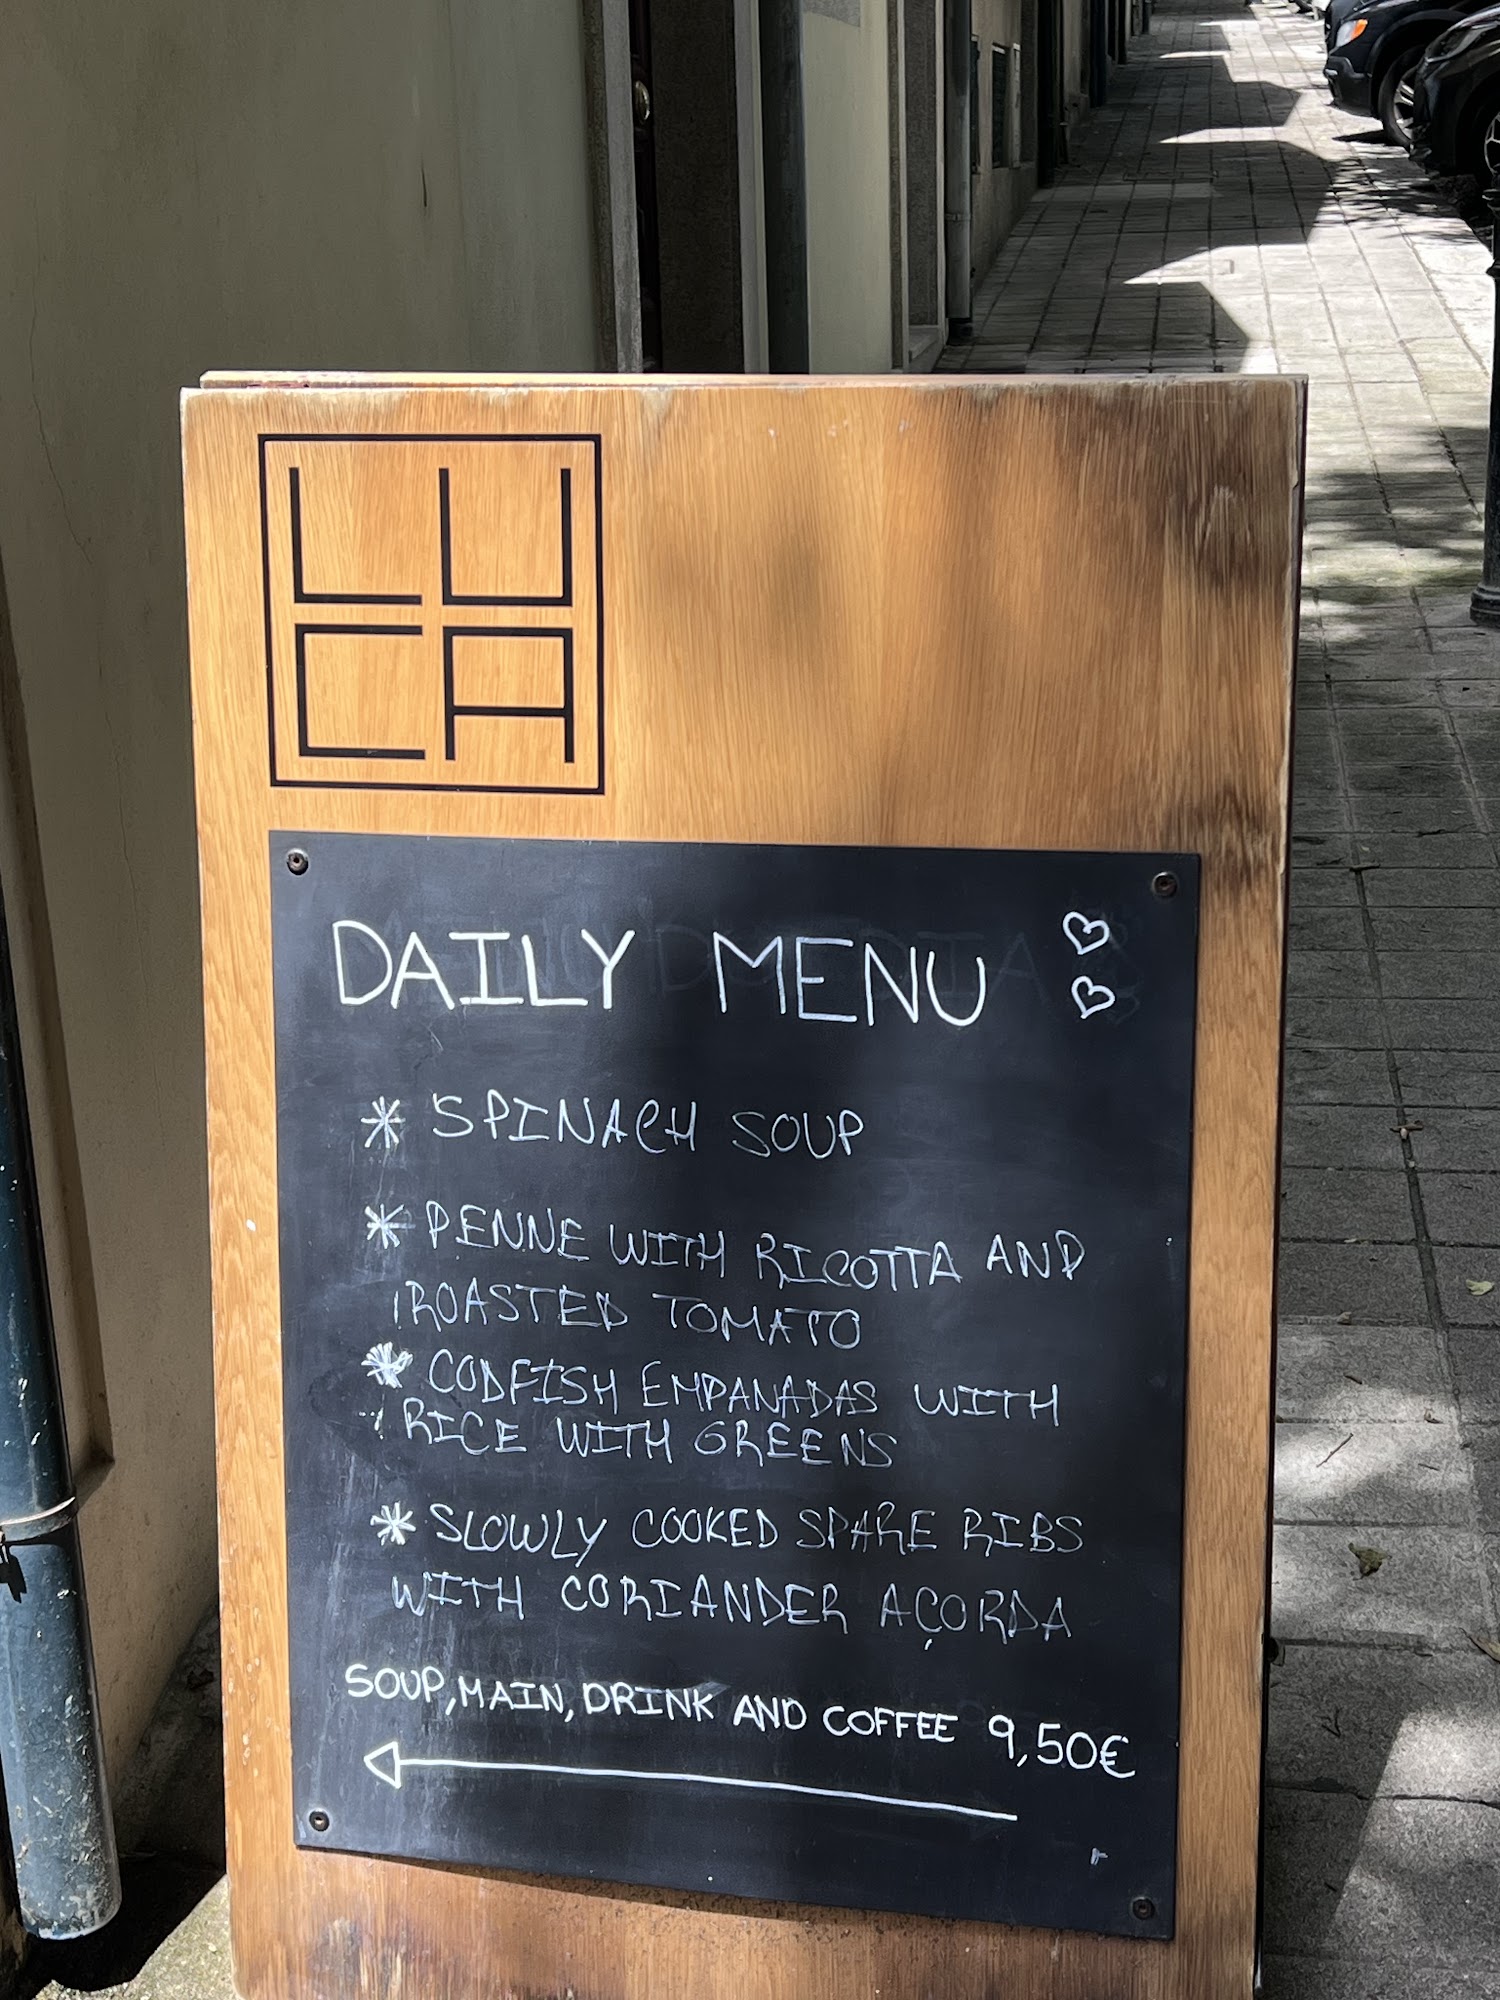 LU
CA
DAILY MENU
* SPINACH SOUP
* PENNE WITH RICOTTA AND
ROASTED TOMATO
* CODFISH EMPANADAS WITH
RICE WITH GREENS
* SLOWLY COOKED SPARE RIBS
WITH CORIANDER AÇORDA
SOUP, MAIN, DRINK AND COFFEE 9,50€